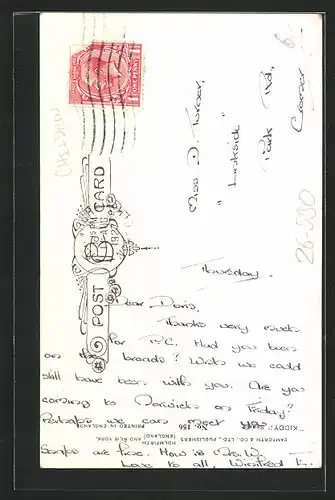 Miss D. Turner,
"Lookside"
Park Rd,
Cromer
Thursday.
Dear Doris,
Thanks very much
for P.C. Had you been
on the broads? Wish we could
still have been with you. Are you
coming to Norwich on Friday?
Perhaps we can meet
Snaps are fine. How is
Love to all, Winifred
POST CARD
ONE PENNY
"KIDDY"
No. 156
PRINTED IN ENGLAND
BAMFORTH & CO LTD., PUBLISHERS
HOLMFIRTH
(ENGLAND)
AND NEW YORK.
26-590